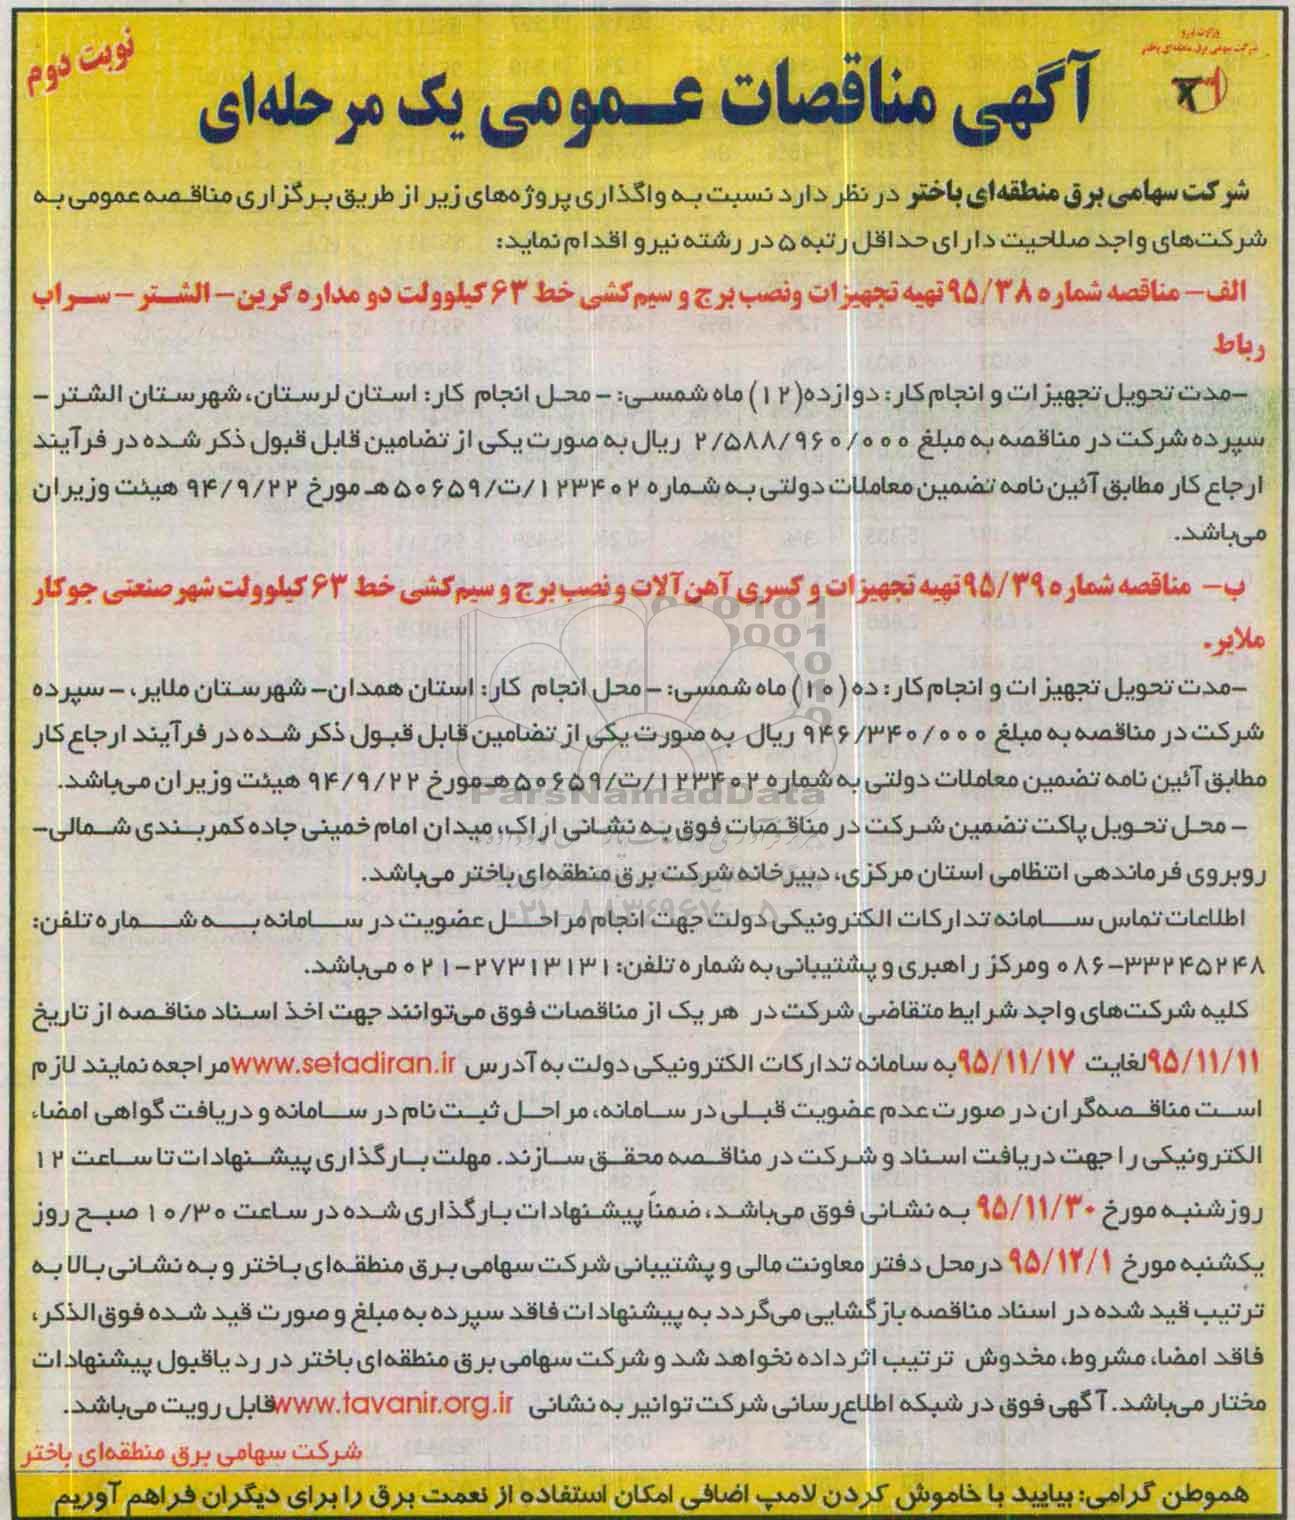 وزارت نیرو
شرکت سهامی برق منطقه‌ای باختر
نوبت دوم
آگهی مناقصات عمومی یک مرحله‌ای
شرکت سهامی برق منطقه‌ای باختر در نظر دارد نسبت به واگذاری پروژه‌های زیر از طریق برگزاری مناقصه عمومی به
شرکت‌های واجد صلاحیت دارای حداقل رتبه ۵ در رشته نیرو اقدام نماید:
الف- مناقصه شماره ۹۵/۳۸ تهیه تجهیزات ونصب برج و سیم‌کشی خط ۶۳ کیلوولت دو مداره گرین- الشتر - سراب
رباط
-مدت تحویل تجهیزات و انجام کار: دوازده(۱۲) ماه شمسی: - محل انجام کار: استان لرستان، شهرستان الشتر -
سپرده شرکت در مناقصه به مبلغ ۲/۵۸۸/۹۶۰/۰۰۰ ریال به صورت یکی از تضامین قابل قبول ذکر شده در فرآیند
ارجاع کار مطابق آئین نامه تضمین معاملات دولتی به شماره ۱۲۳۴۰۲/ت/۵۰۶۵۹هـ مورخ ۹۴/۹/۲۲ هیئت وزیران
می‌باشد.
ب- مناقصه شماره ۹۵/۳۹ تهیه تجهیزات و کسری آهن‌آلات و نصب برج و سیم‌کشی خط ۶۳ کیلوولت شهر صنعتی جوکار
ملایر.
-مدت تحویل تجهیزات و انجام کار: ده (۱۰) ماه شمسی: - محل انجام کار: استان همدان- شهرستان ملایر، - سپرده
شرکت در مناقصه به مبلغ ۹۴۶/۳۴۰/۰۰۰ ریال به صورت یکی از تضامین قابل قبول ذکر شده در فرآیند ارجاع کار
مطابق آئین نامه تضمین معاملات دولتی به شماره ۱۲۳۴۰۲/ت/۵۰۶۵۹هـ مورخ ۹۴/۹/۲۲ هیئت وزیران می‌باشد.
ParsNamadData
- محل تحویل پاکت تضمین شرکت در مناقصات فوق به نشانی اراک، میدان امام خمینی جاده کمربندی شمالی-
روبروی فرماندهی انتظامی استان مرکزی، دبیرخانه شرکت برق منطقه‌ای باختر می‌باشد.
۰۲۱-۸۸۳۴۹۶۷۰-۵
اطلاعات تماس سامانه تدارکات الکترونیکی دولت جهت انجام مراحل عضویت در سامانه به شماره تلفن:
۰۸۶-۳۳۲۴۵۲۴۸ ومرکز راهبری و پشتیبانی به شماره تلفن: ۰۲۱-۲۷۳۱۳۱۳۱ می‌باشد.
کلیه شرکت‌های واجد شرایط متقاضی شرکت در هر یک از مناقصات فوق می‌توانند جهت اخذ اسناد مناقصه از تاریخ
۹۵/۱۱/۱۱ لغایت ۹۵/۱۱/۱۷ به سامانه تدارکات الکترونیکی دولت به آدرس www.setadiran.ir مراجعه نمایند لازم
است مناقصه‌گران در صورت عدم عضویت قبلی در سامانه، مراحل ثبت نام در سامانه و دریافت گواهی امضاء
الکترونیکی را جهت دریافت اسناد و شرکت در مناقصه محقق سازند. مهلت بارگذاری پیشنهادات تا ساعت ۱۲
روزشنبه مورخ ۹۵/۱۱/۳۰ به نشانی فوق می‌باشد، ضمناً پیشنهادات بارگذاری شده در ساعت ۱۰/۳۰ صبح روز
یکشنبه مورخ ۹۵/۱۲/۱ درمحل دفتر معاونت مالی و پشتیبانی شرکت سهامی برق منطقه‌ای باختر و به نشانی بالا به
ترتیب قید شده در اسناد مناقصه بازگشایی می‌گردد به پیشنهادات فاقد سپرده به مبلغ و صورت قید شده فوق‌الذکر،
فاقد امضا، مشروط، مخدوش ترتیب اثر داده نخواهد شد و شرکت سهامی برق منطقه‌ای باختر در رد یاقبول پیشنهادات
مختار می‌باشد. آگهی فوق در شبکه اطلاع‌رسانی شرکت توانیر به نشانی www.tavanir.org.ir قابل رویت می‌باشد.
شرکت سهامی برق منطقه‌ای باختر
هموطن گرامی: بیایید با خاموش کردن لامپ اضافی امکان استفاده از نعمت برق را برای دیگران فراهم آوریم